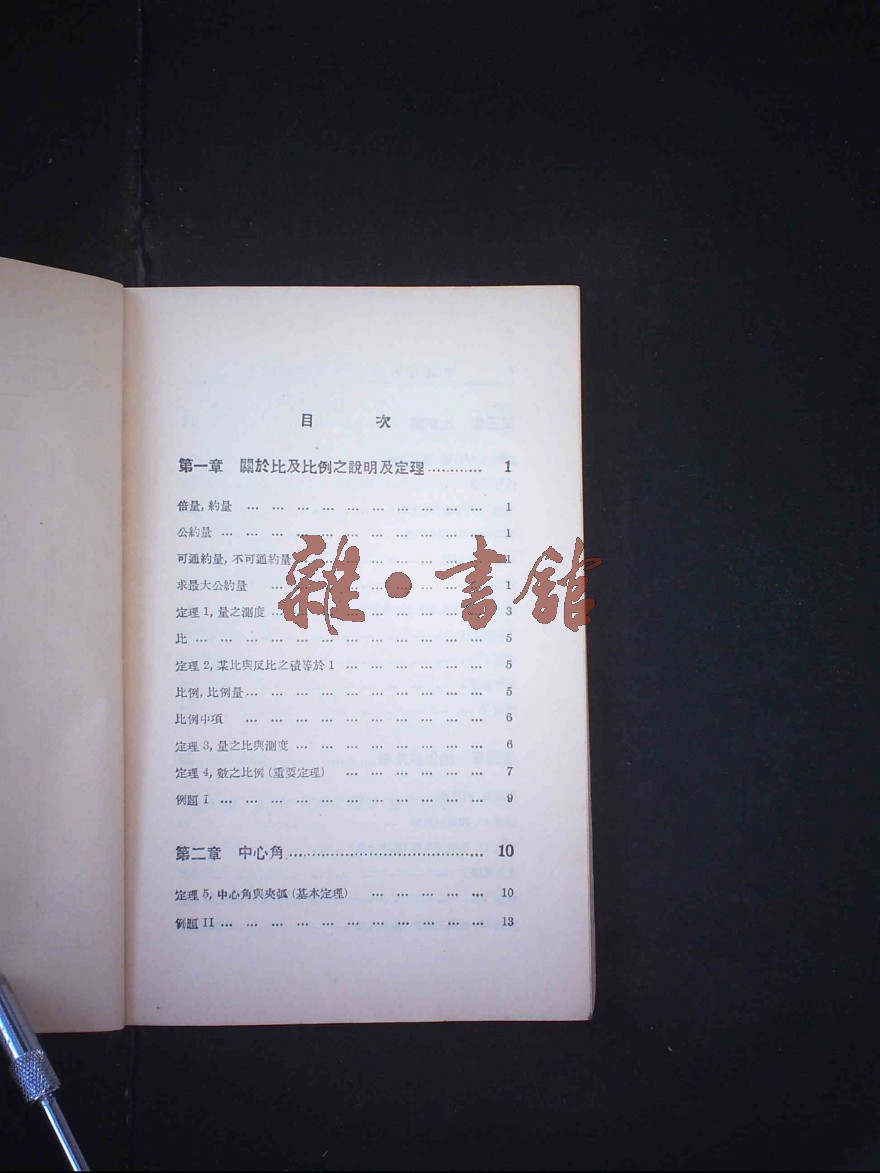 目 次
第一章 關於比及比例之說明及定理………… 1
倍量,約量 … … … … … … … … … … 1
公約量 … … … … … … … … … … … 1
可通約量,不可通約量 … … … … … … … 1
求最大公約量 … … … … … … … … … 1
定理1,量之測度 … … … … … … … … … 3
比 … … … … … … … … … … … … 5
定理2,某比與反比之積等於1 … … … … … … 5
比例,比例量 … … … … … … … … … … 5
比例中項 … … … … … … … … … … 6
定理3,量之比與測度 … … … … … … … … 6
定理4,數之比例(重要定理) … … … … … … 7
例題I … … … … … … … … … … … 9
第二章 中心角………………………………… 10
定理5,中心角與夾弧(基本定理) … … … … … 10
例題II … … … … … … … … … … … 13
雜·書館